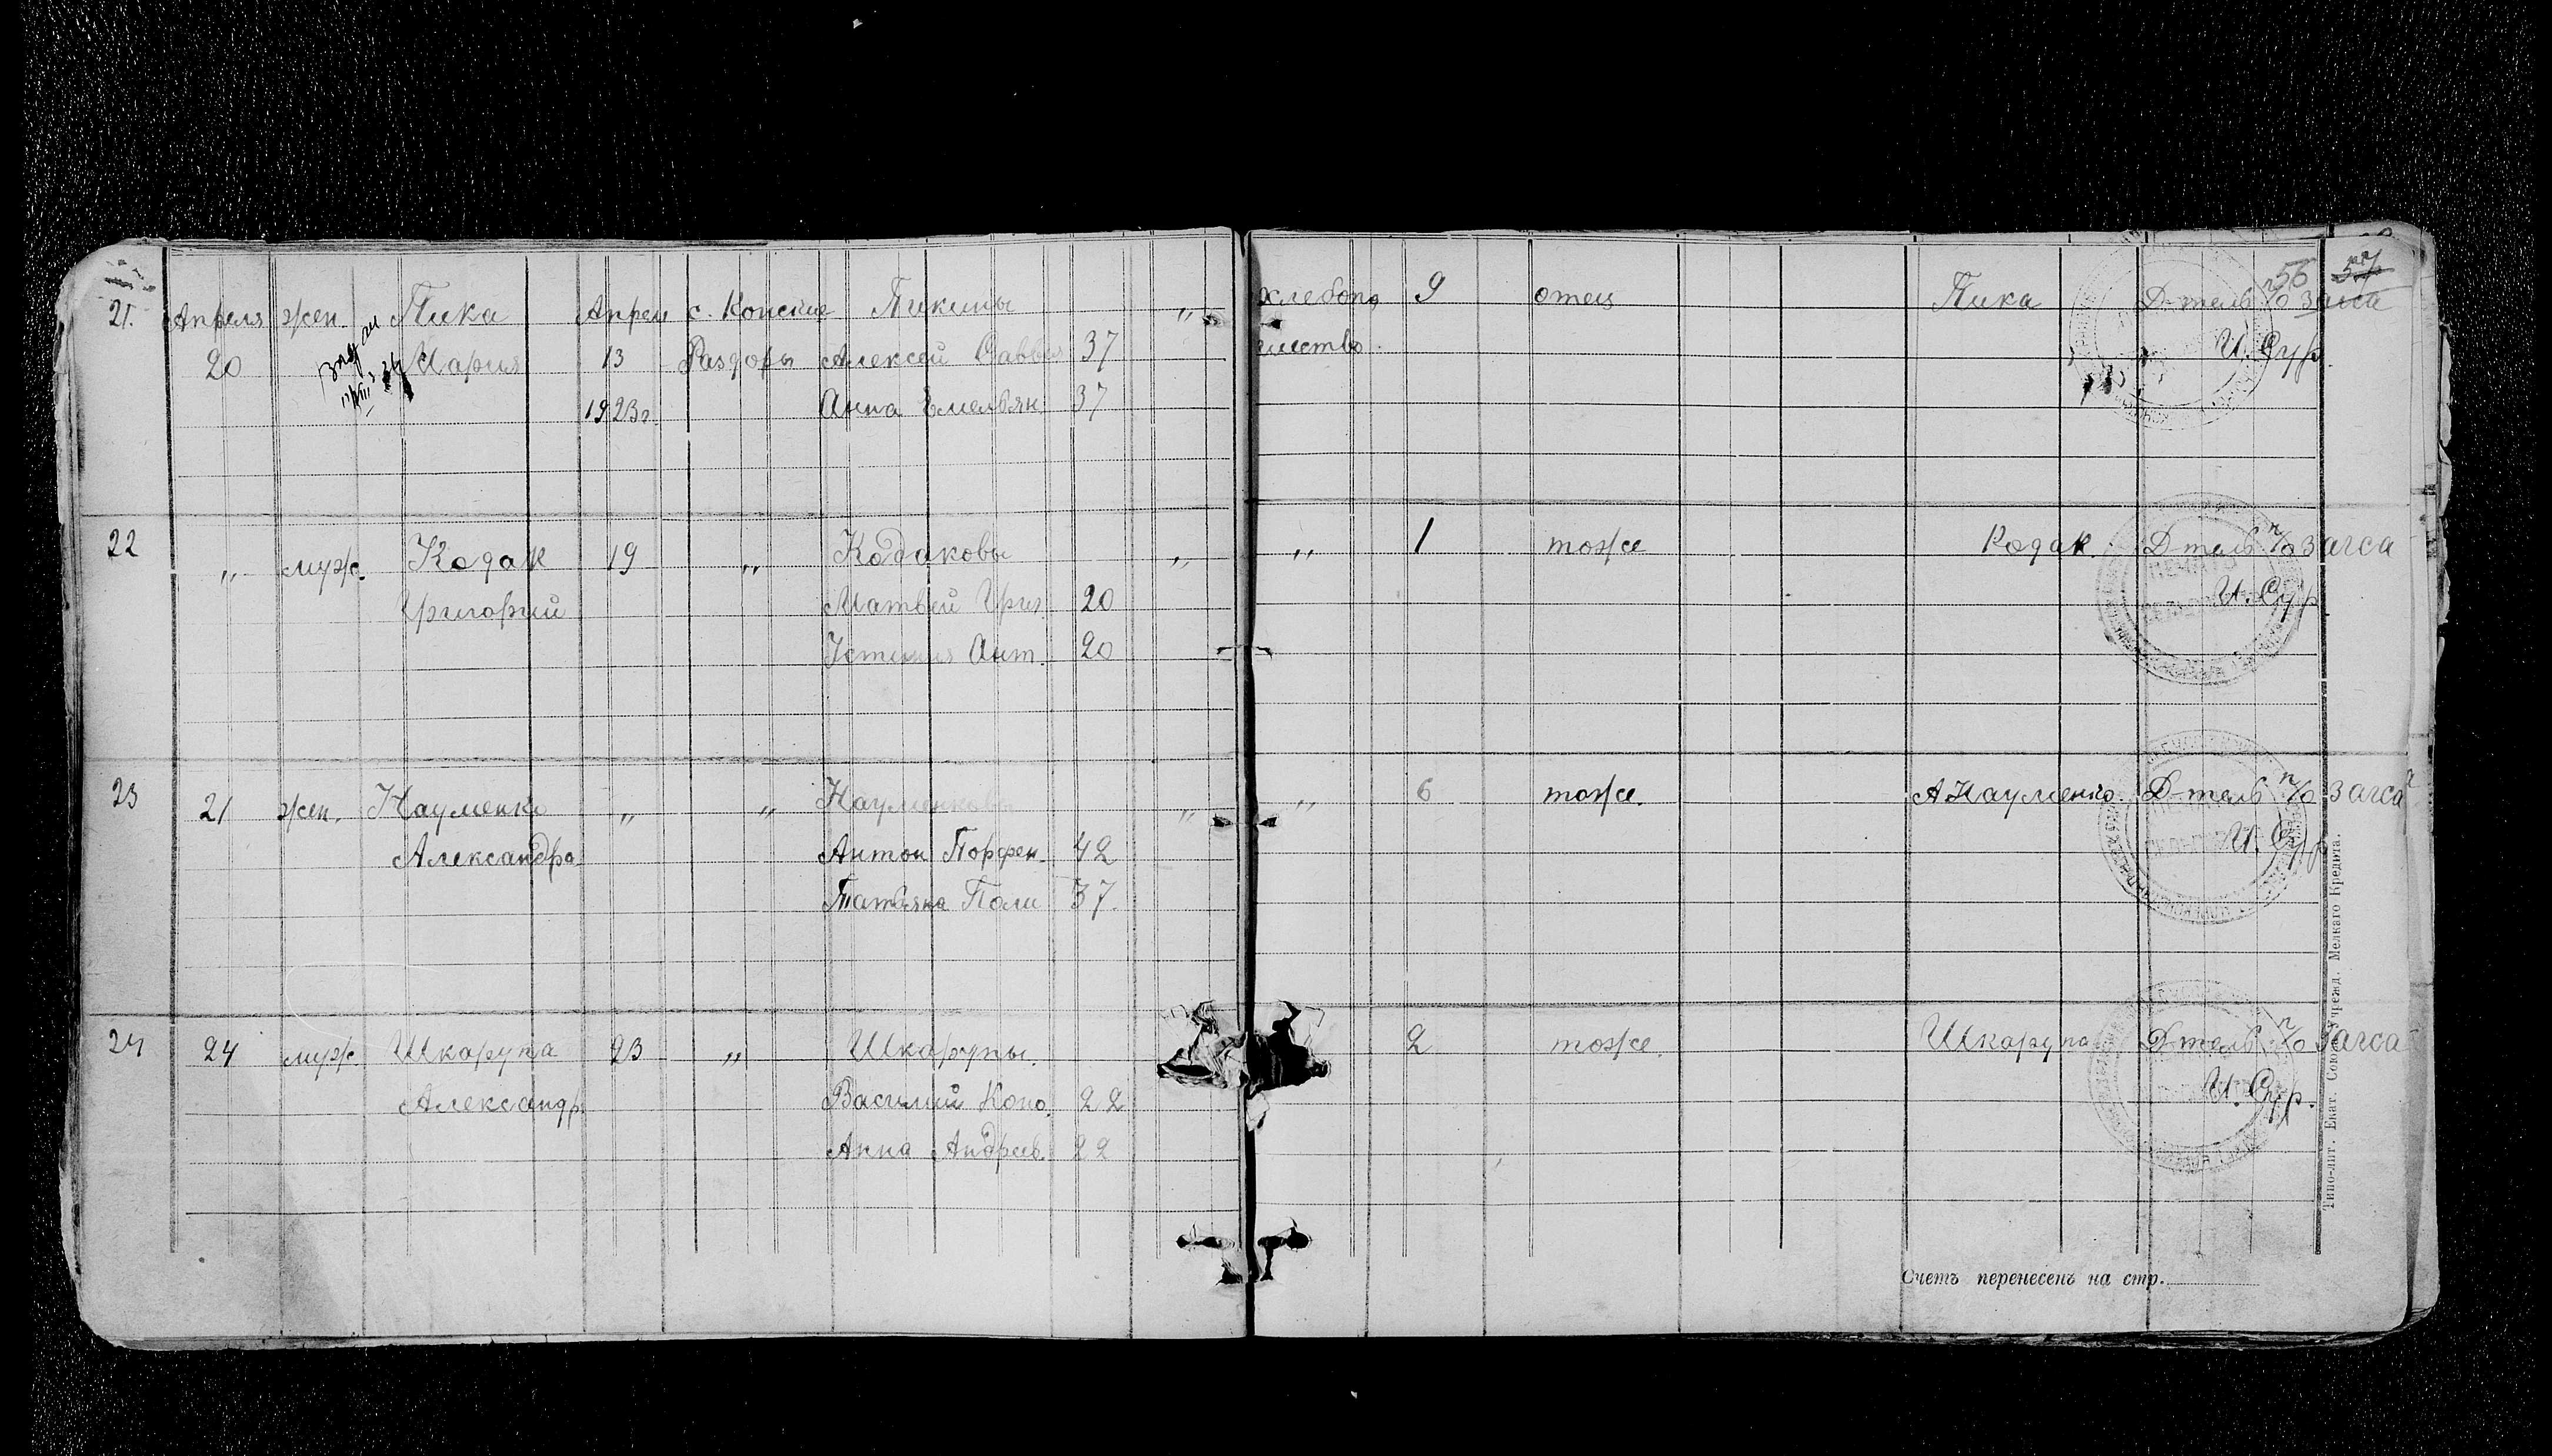 56 57
21. Апреля жен. Пика Апрел с. Конские Пикины „ хлебопа 9 отец Пика Д-тель п/о загса
20 Мария 13 Раздоры Алексей Саввич 37 шество И. Сур
1923г. Анна Емельян. 37
22 „ муж. Кодак 19 „ Кодаковы „ „ 1 тоже Кодак. Д-тель п/о загса
Григорий Матвей Григ. 20 И. Сур
Устиния Ант. 20
23 21 жен. Науменко „ „ Науменковы „ „ 6 тоже. А Науменко. Д-тель п/о загса
Александра Антон Порфен. 42 И. Сур
Татьяна Поли 37.
24 24 муж. Шкарупа 23 „ Шкарупы. 2 тоже. Шкарупа Д-тель п/о загса
Александр. Василий Коно. 22 И. Сур.
Анна Андреев. 22
Счетъ перенесенъ на стр.
Типо-лит. Екат. Союза Учрежд. Мелкаго Кредита.